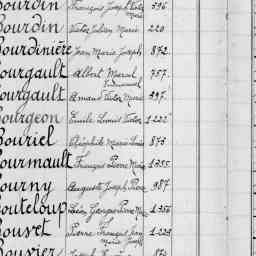 Bourdin François Joseph Victor 596.
Marie
Bourdin Victor Julien Marie 220
Bourdinière Jean Marie Joseph 872.
Bourgault Albert Marcel 757.
Emmanuel
Bourgault Amand Victor Marie 497.
Bourgeon Emile Louis Victor 1222.
Bouriel Théophile Marie Louis 873
Bourmault François Pierre Marie 1355.
Bourny Auguste Joseph Pierre 987.
Bouteloup Léon Georges Pierre Marie 1356
Bouvet Pierre François Jean 1223
Marie Joseph
Bouvier Joseph